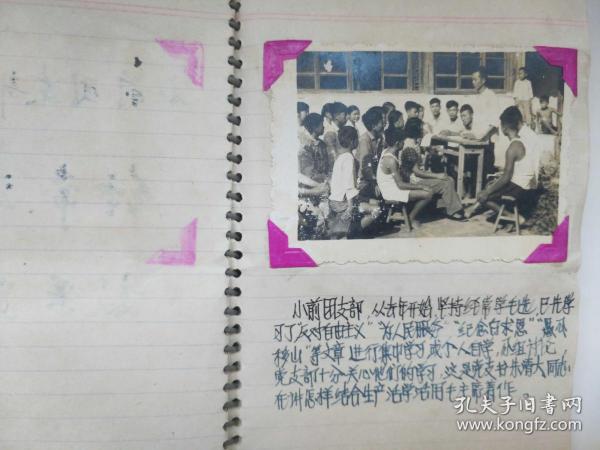 小前团支部，从去年开始，坚持经常学毛选，已先学
习了“反对自由主义”“为人民服务”“纪念白求恩”“愚公
移山”等文章，进行集中学习或个人自学，
党支部十分关心他们的学习，这是党支
在讲怎样结合生产活学活用毛主席著作。
孔夫子旧书网
www.kongfz.com